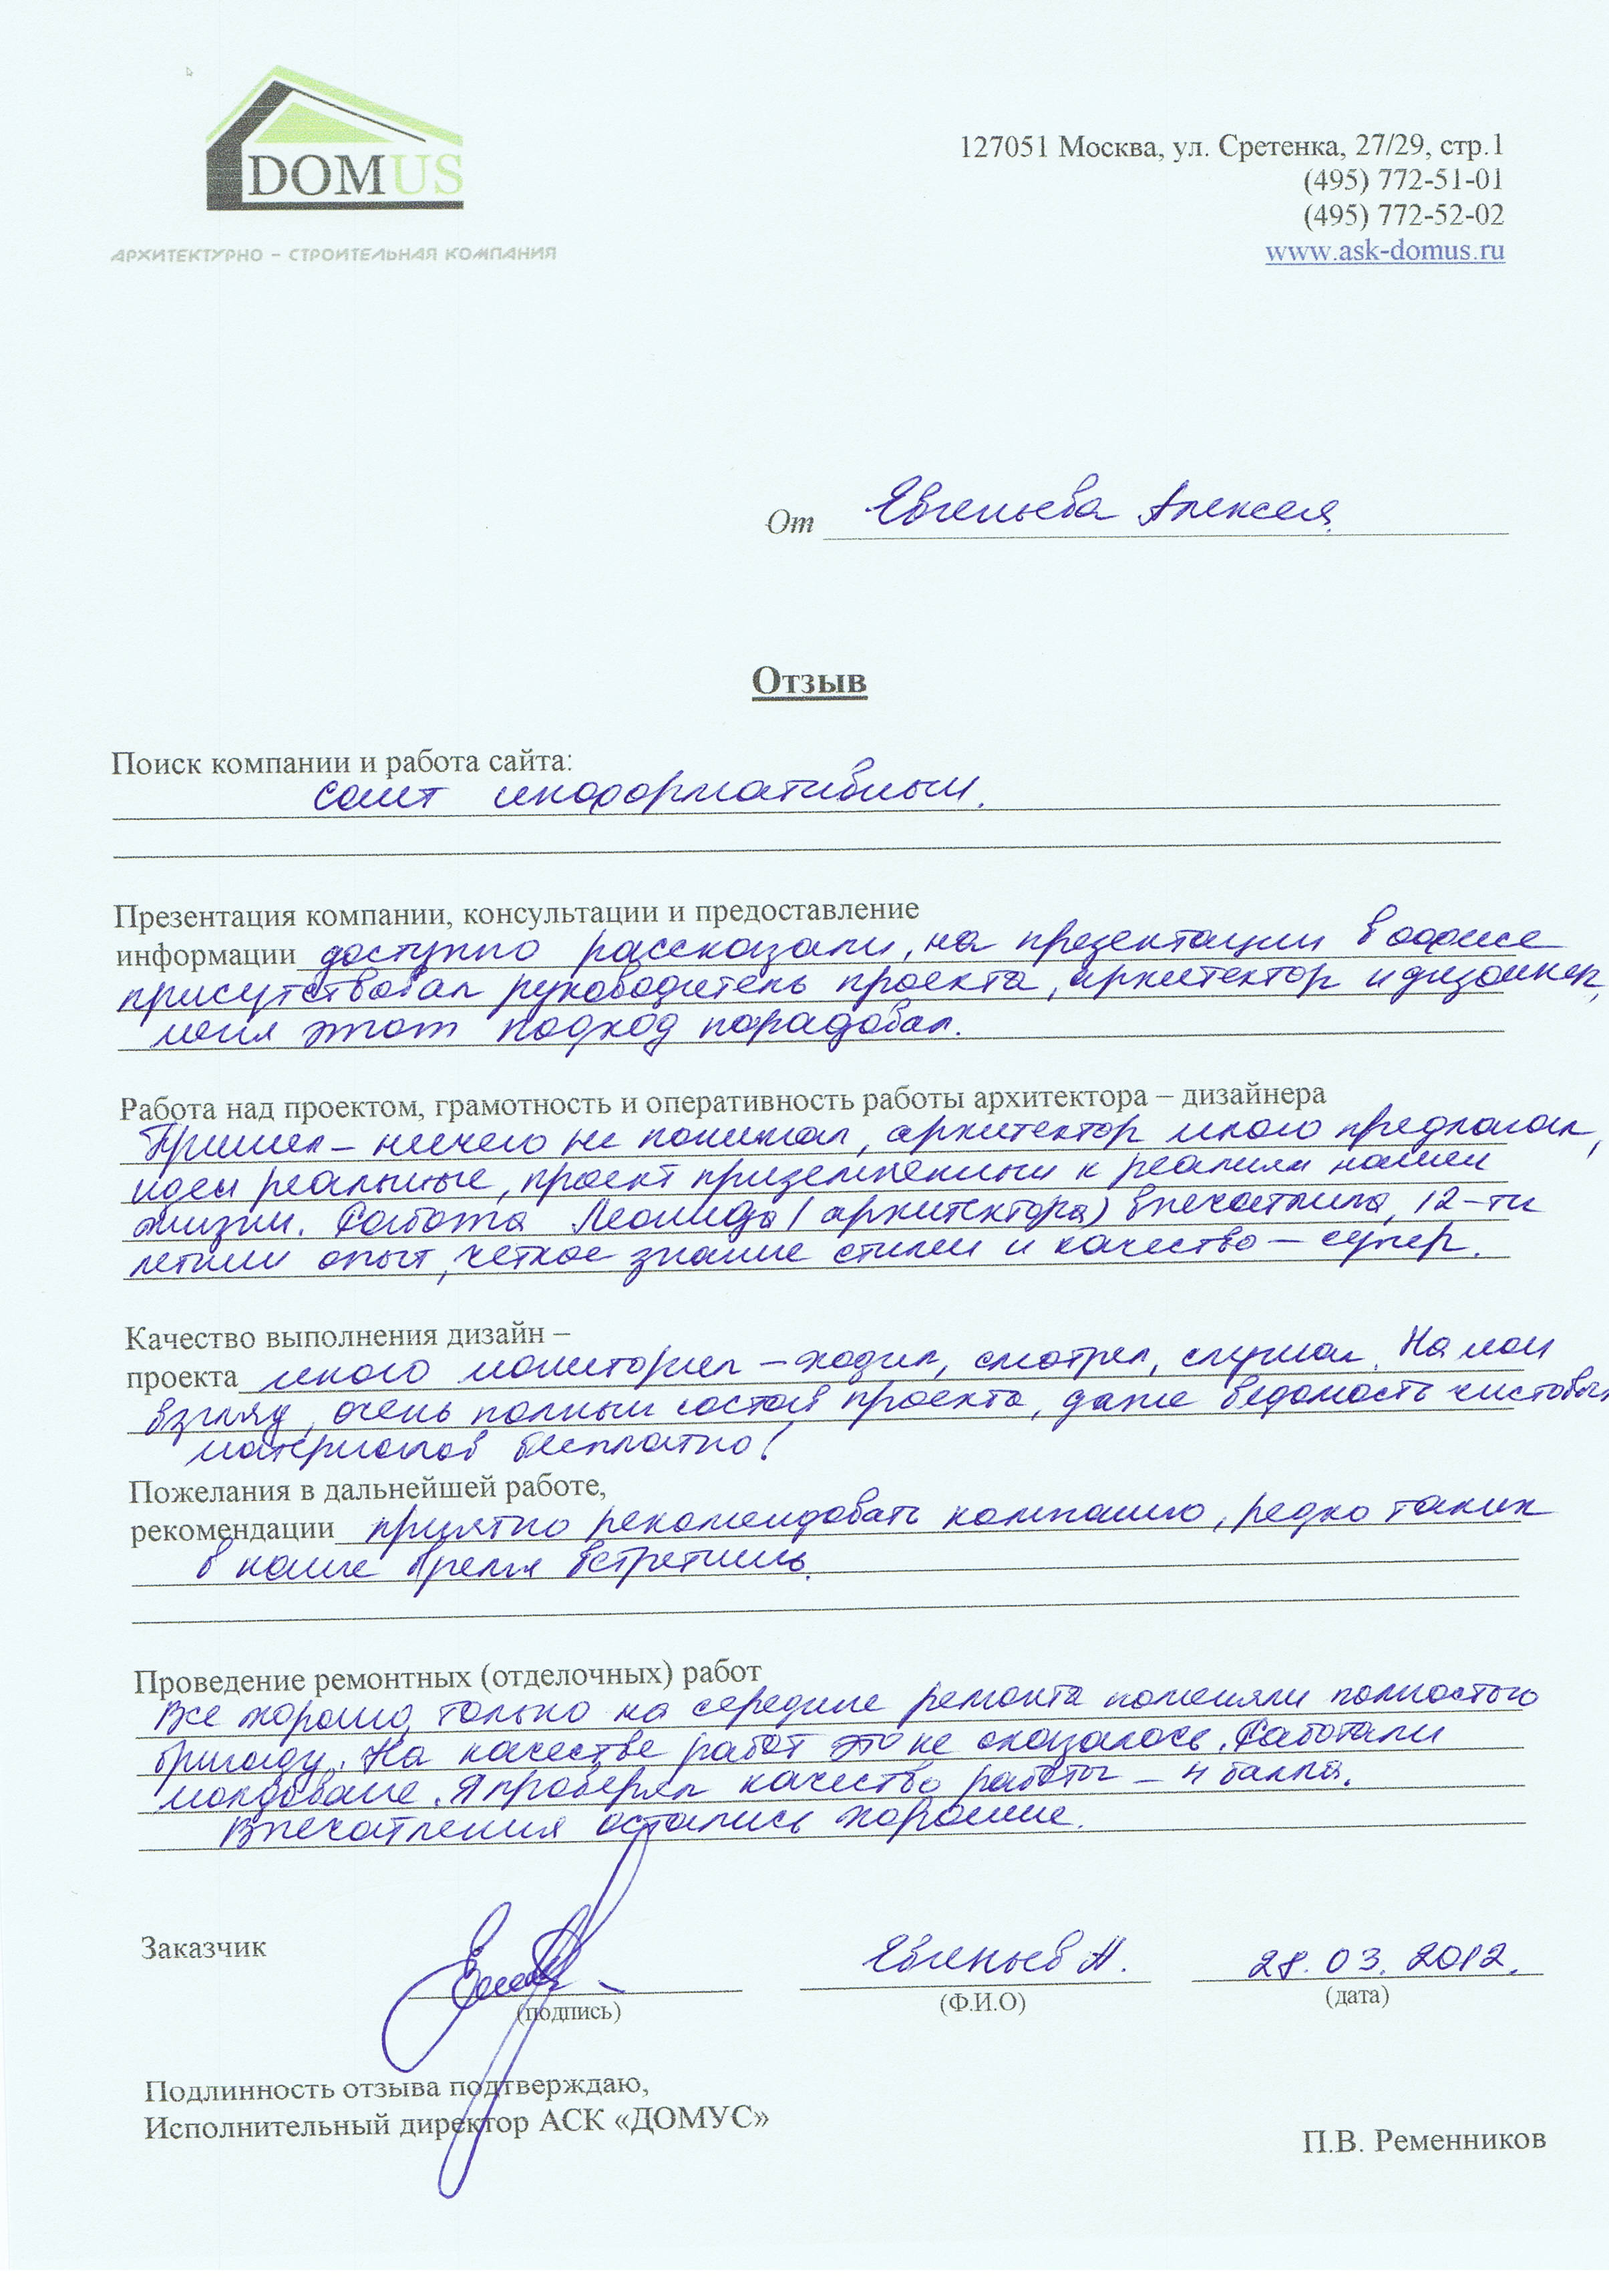 DOMUS
АРХИТЕКТУРНО – СТРОИТЕЛЬНАЯ КОМПАНИЯ
127051 Москва, ул. Сретенка, 27/29, стр.1
(495) 772-51-01
(495) 772-52-02
www.ask-domus.ru
От Евгеньева Алексея.
Отзыв
Поиск компании и работа сайта:
сайт информативный.
Презентация компании, консультации и предоставление
информации доступно рассказали, на презентации в офисе
присутствовал руководитель проекта, архитектор и дизайнер,
меня этот подход порадовал.
Работа над проектом, грамотность и оперативность работы архитектора – дизайнера
Пришел – ничего не понимал, архитектор много предлагал,
идеи реальные, проект приземленный к реалиям нашей
жизни. Работа Леонида (архитектора) впечатлила, 12-ти
летний опыт, четкое знание стилей и качество – супер.
Качество выполнения дизайн –
проекта много мониторил – ходил, смотрел, слушал. На мой
взгляд, очень полный состав проекта, даже ведомость чистовых
материалов бесплатно!
Пожелания в дальнейшей работе,
рекомендации приятно рекомендовать компанию, редко таких
в наше время встретишь.
Проведение ремонтных (отделочных) работ
Все хорошо, только на середине ремонта поменяли полностью
бригаду. На качестве работ это не сказалось. Работали
молдоване. Я проверял качество работы – 4 балла.
Впечатления остались хорошие.
Заказчик
Евгеньев А.
28.03.2012.
(подпись)
(Ф.И.О)
(дата)
Подлинность отзыва подтверждаю,
Исполнительный директор АСК «ДОМУС»
П.В. Ременников